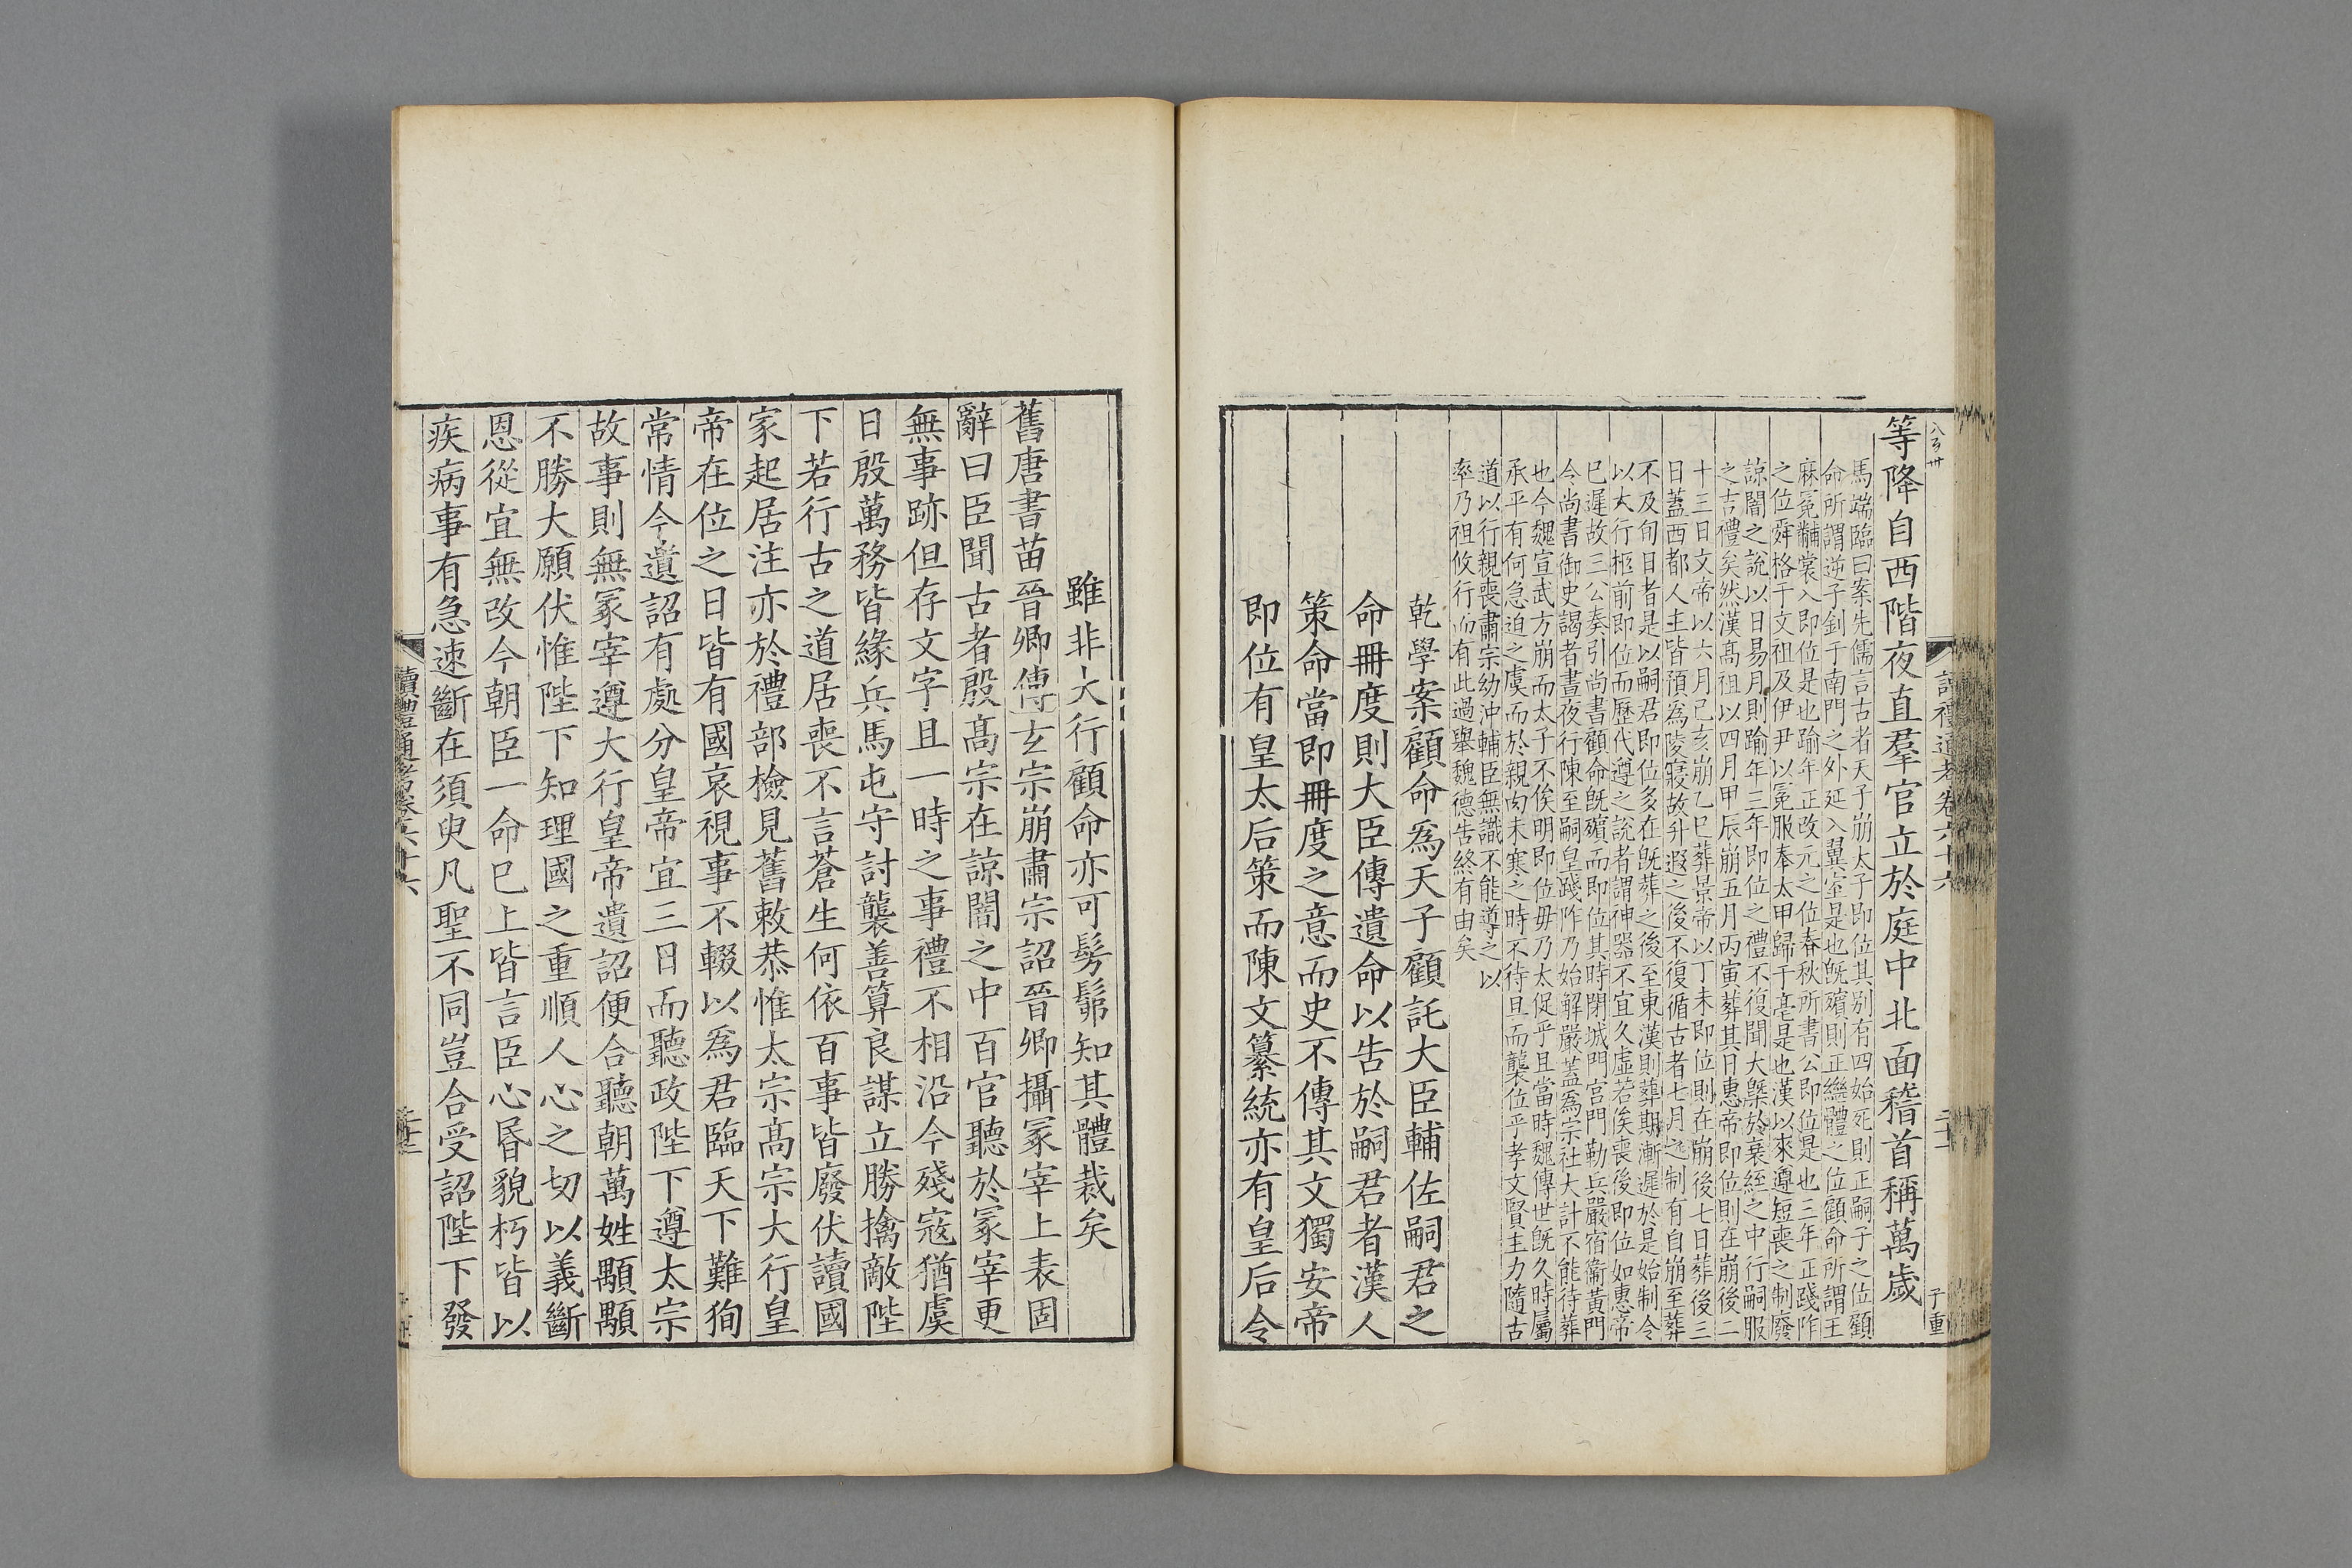 等降自西階夜直羣官立於庭中北面稽首稱萬歲
馬端臨曰案先儒言古者天子崩太子即位其别有四始死則正嗣子之位顧
命所謂逆子釗于南門之外延入翼室是也旣殯則正繼體之位顧命所謂王
麻冕黼裳入即位是也踰年正改元之位春秋所書公即位是也三年正踐阼
之位舜格于文祖及伊尹以冕服奉太甲歸于亳是也漢以來遵短喪之制廢
諒闇之說以日易月則踰年三年即位之禮不復聞大槩於衰絰之中行嗣服
之吉禮矣然漢髙祖以四月甲辰崩五月丙寅葬其日惠帝即位則在崩後二
十三日文帝以六月已亥崩乙巳葬景帝以丁未即位則在崩後七日葬後三
日蓋西都人主皆預爲陵寢故升遐之後不復循古者七月之制有自崩至葬
不及旬日者是以嗣君即位多在旣葬之後至東漢則葬期漸遲於是始制令
以大行柩前即位而歷代遵之說者謂神器不宜久虛若俟喪後即位如惠帝
巳遲故三公奏引尚書顧命旣殯而即位其時閉城門宫門勒兵嚴宿衞黃門
令尚書御史謁者晝夜行陳至嗣皇踐阼乃始解嚴蓋爲宗社大計不能待葬
也今魏宣武方崩而太子不俟明即位毋乃太促乎且當時魏傳世旣久時屬
承平有何急迫之虞而於親肉未寒之時不待旦而襲位乎孝文賢主力隨古
道以行親喪肅宗幼沖輔臣無識不能導之以
率乃祖攸行而有此過舉魏德吿終有由矣
乾學案顧命爲天子顧託大臣輔佐嗣君之
命冊度則大臣傳遺命以吿於嗣君者漢人
策命當即冊度之意而史不傳其文獨安帝
即位有皇太后策而陳文纂統亦有皇后令
讀禮通考卷六十六
子重
雖非大行顧命亦可髣髴知其體裁矣
舊唐書苗晉卿傳玄宗崩肅宗詔晉卿攝冢宰上表固
辭曰臣聞古者殷髙宗在諒闇之中百官聽於冢宰更
無事跡但存文字且一時之事禮不相沿今殘寇猶虞
日殷萬務皆緣兵馬屯守討襲善算良謀立勝擒敵陛
下若行古之道居喪不言蒼生何依百事皆廢伏讀國
家起居注亦於禮部檢見舊敕恭惟太宗髙宗大行皇
帝在位之日皆有國哀視事不輟以爲君臨天下難狥
常情今遺詔有處分皇帝宜三日而聽政陛下遵太宗
故事則無冢宰遵大行皇帝遺詔便合聽朝萬姓顒顒
不勝大願伏惟陛下知理國之重順人心之切以義斷
恩從宜無改今朝臣一命巳上皆言臣心昬貌朽皆以
疾病事有急速斷在須臾凡聖不同豈合受詔陛下發
讀禮通考卷六十六